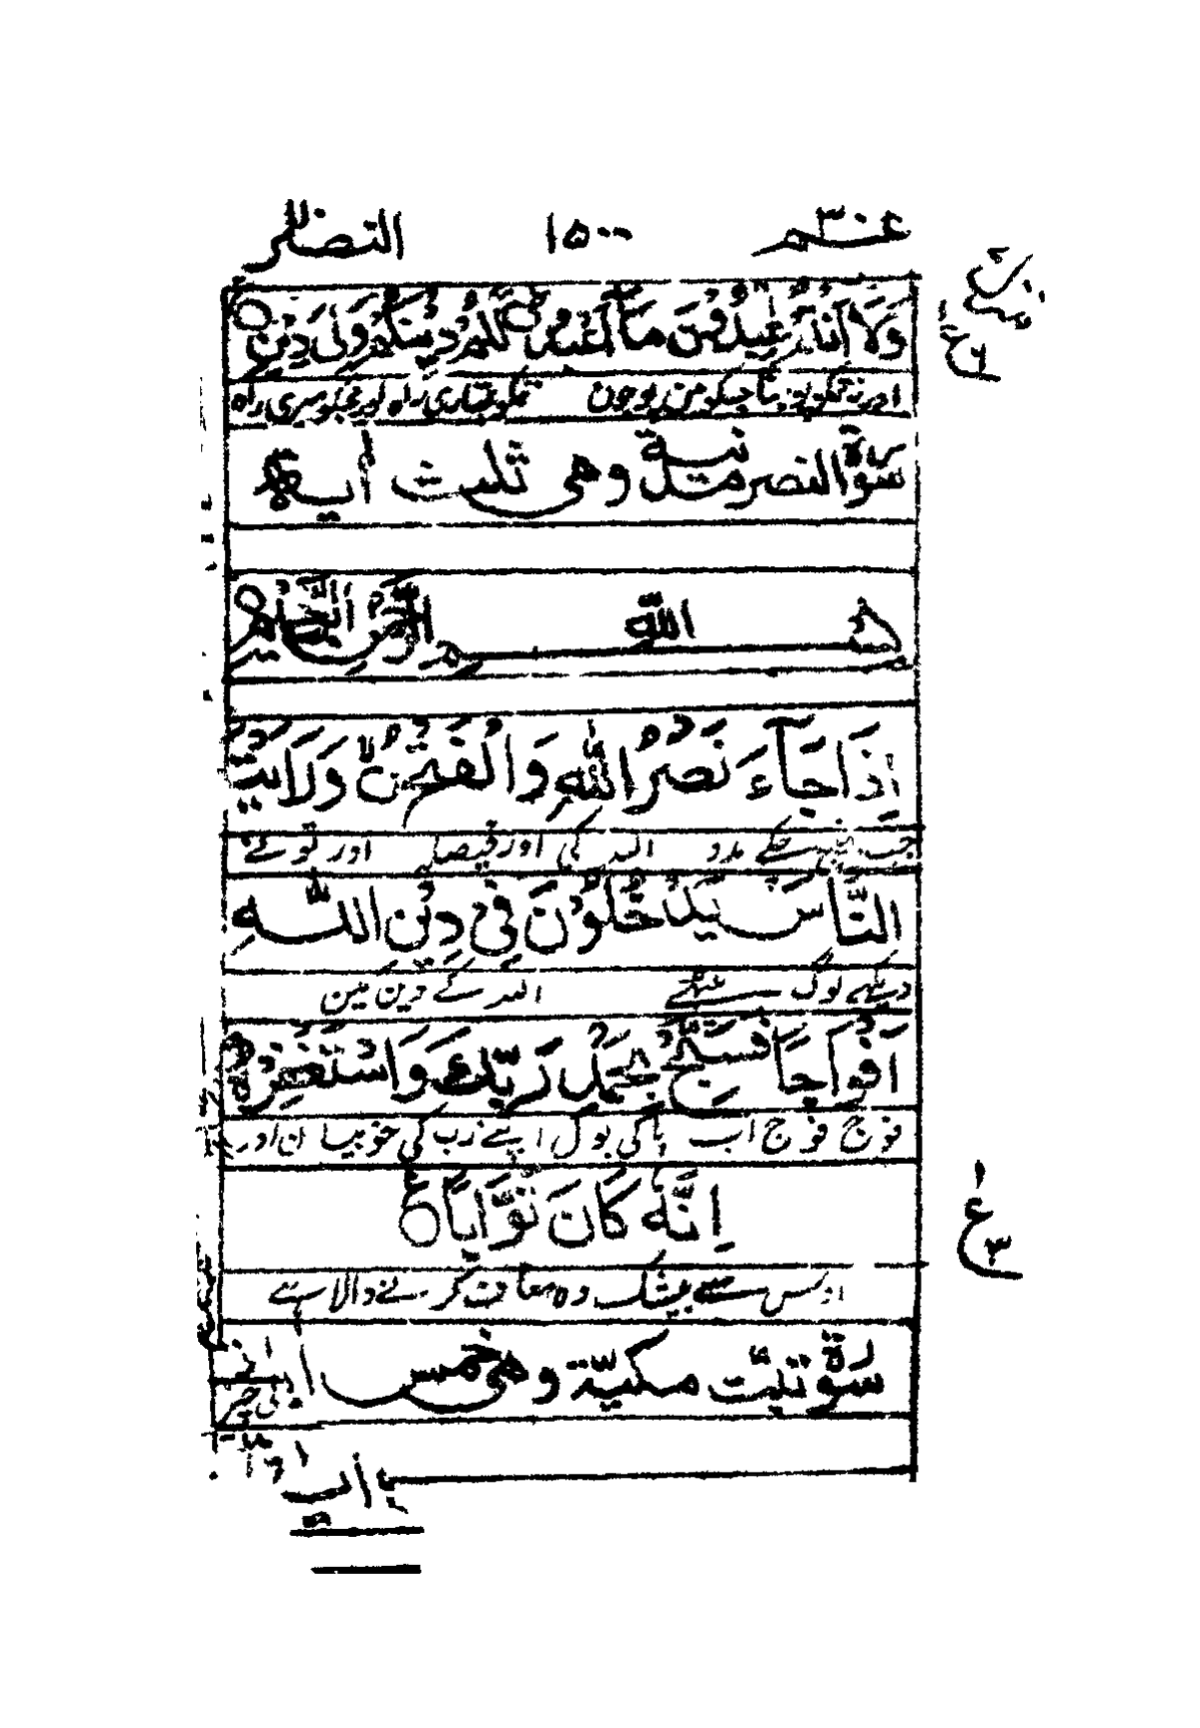 عم ٣٠ ١٥٠٠ النصر
وَلَا أَنْتُمْ عٰبِدُوْنَ مَآ أَعْبُدُ لَكُمْ دِيْنُكُمْ وَلِيَ دِيْنِ
اور نہ تمکو پوجنا جسکو من پوجون تمکو تمہاری راہ اور مجکو میری راہ
سورة النصر مدنية وهي ثلث أية
بسم الله الرحمن الرحيم
اِذَا جَآءَ نَصْرُ اللّٰهِ وَالْفَتْحُ وَرَاَيْتَ
جب مدد الله کی اور فیصلہ اور تو نے
النَّاسَ يَدْخُلُوْنَ فِيْ دِيْنِ اللّٰهِ
دیکھے لوگ الله کے دین مین
اَفْوَاجًا فَسَبِّحْ بِحَمْدِ رَبِّكَ وَاسْتَغْفِرْهُ
فوج فوج اب پاکی بول اپنے رب کی خوبیان اور
اِنَّهٗ كَانَ تَوَّابًا
اوس سے بیشک وہ معاف کرنے والا ہے
سورة تبت مكية وهي خمس
ع
٣